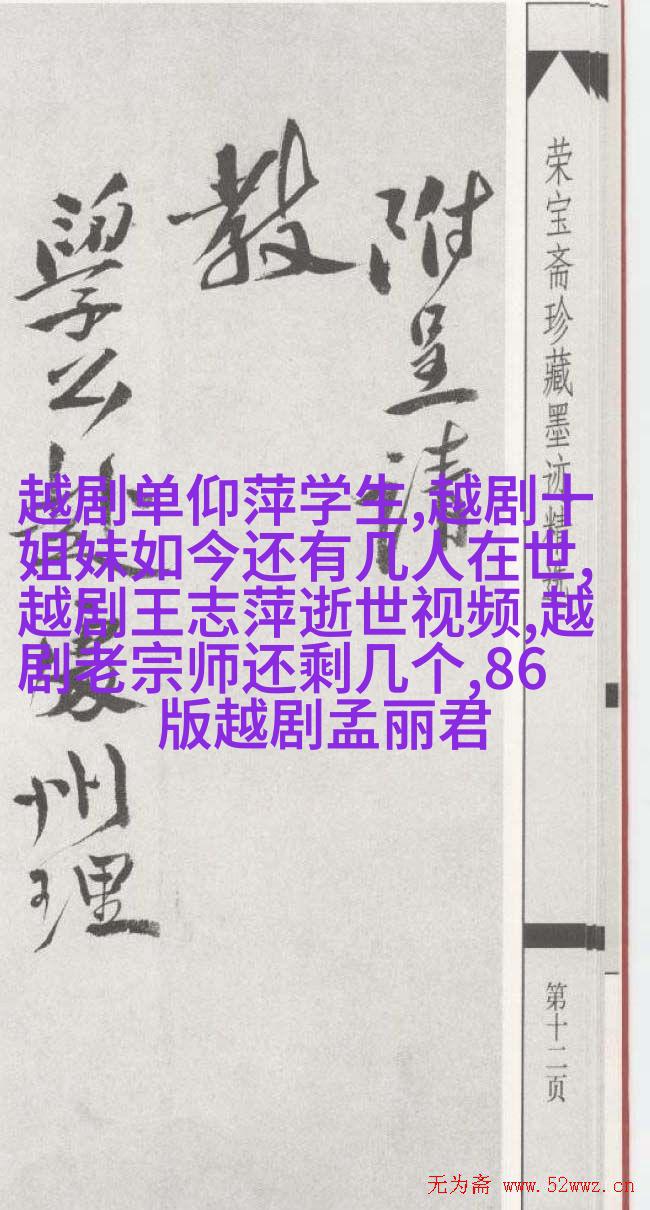 附呈请
教
学公
州理
荣宝斋珍藏墨迹精选
越剧单仰萍学生,越剧十
姐妹如今还有几人在世,
越剧王志萍逝世视频,越
剧老宗师还剩几个,86
版越剧孟丽君
第十二页
无为斋 www.52wwz.cn